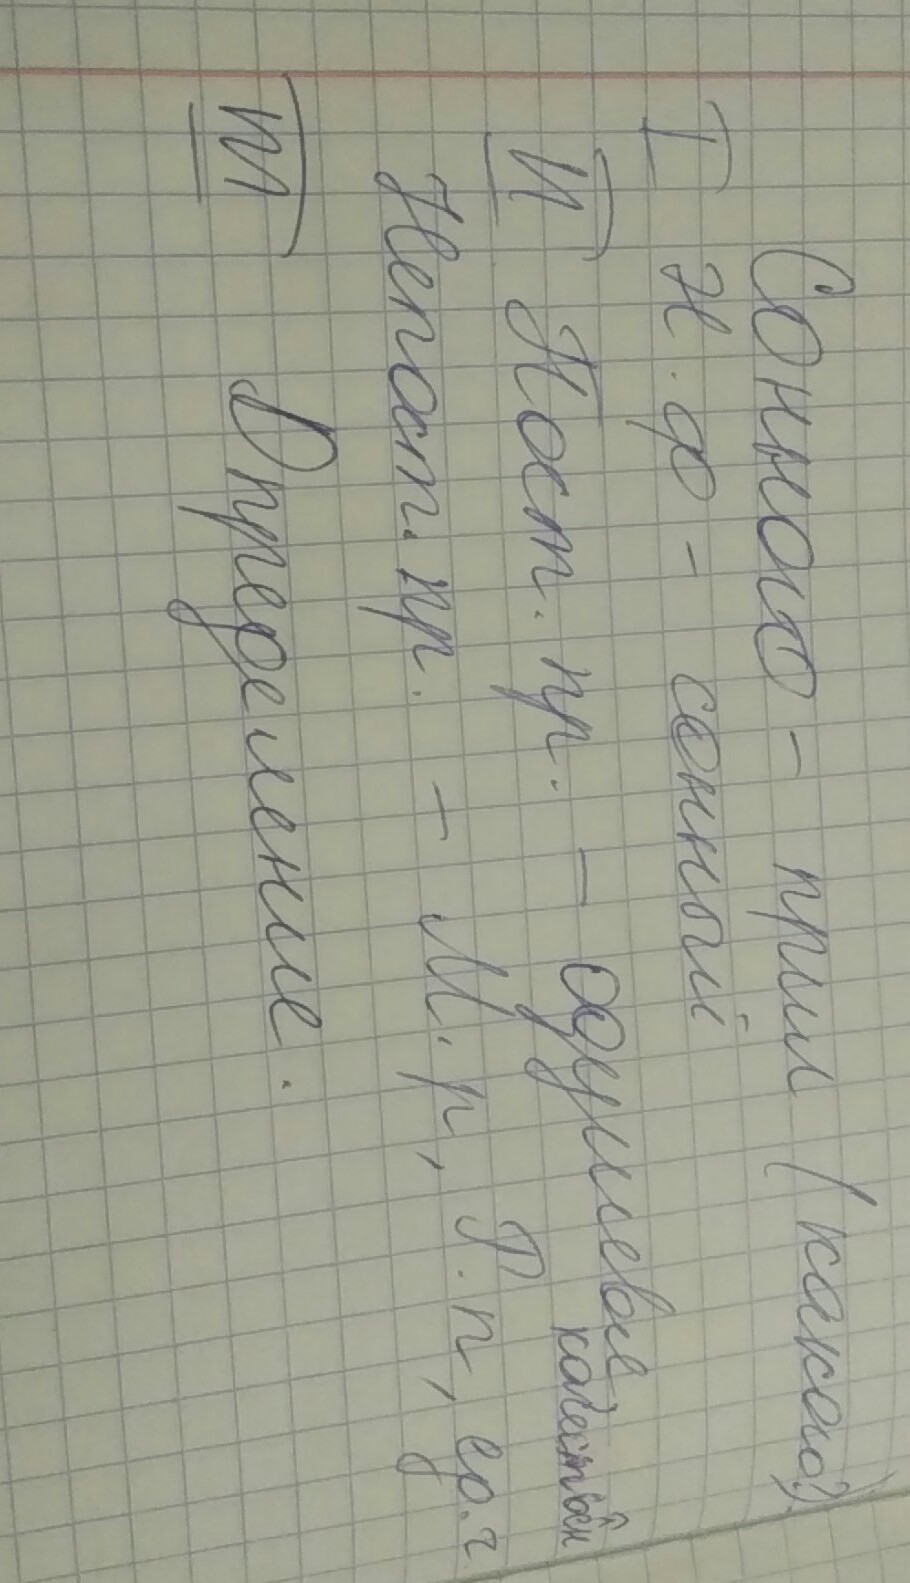 Сонного - прил (какого?)
I Н.ф - сонный
II Пост. пр. -
качествен
Непост. пр. - М.р, Р.п, ед.ч
III Определение.